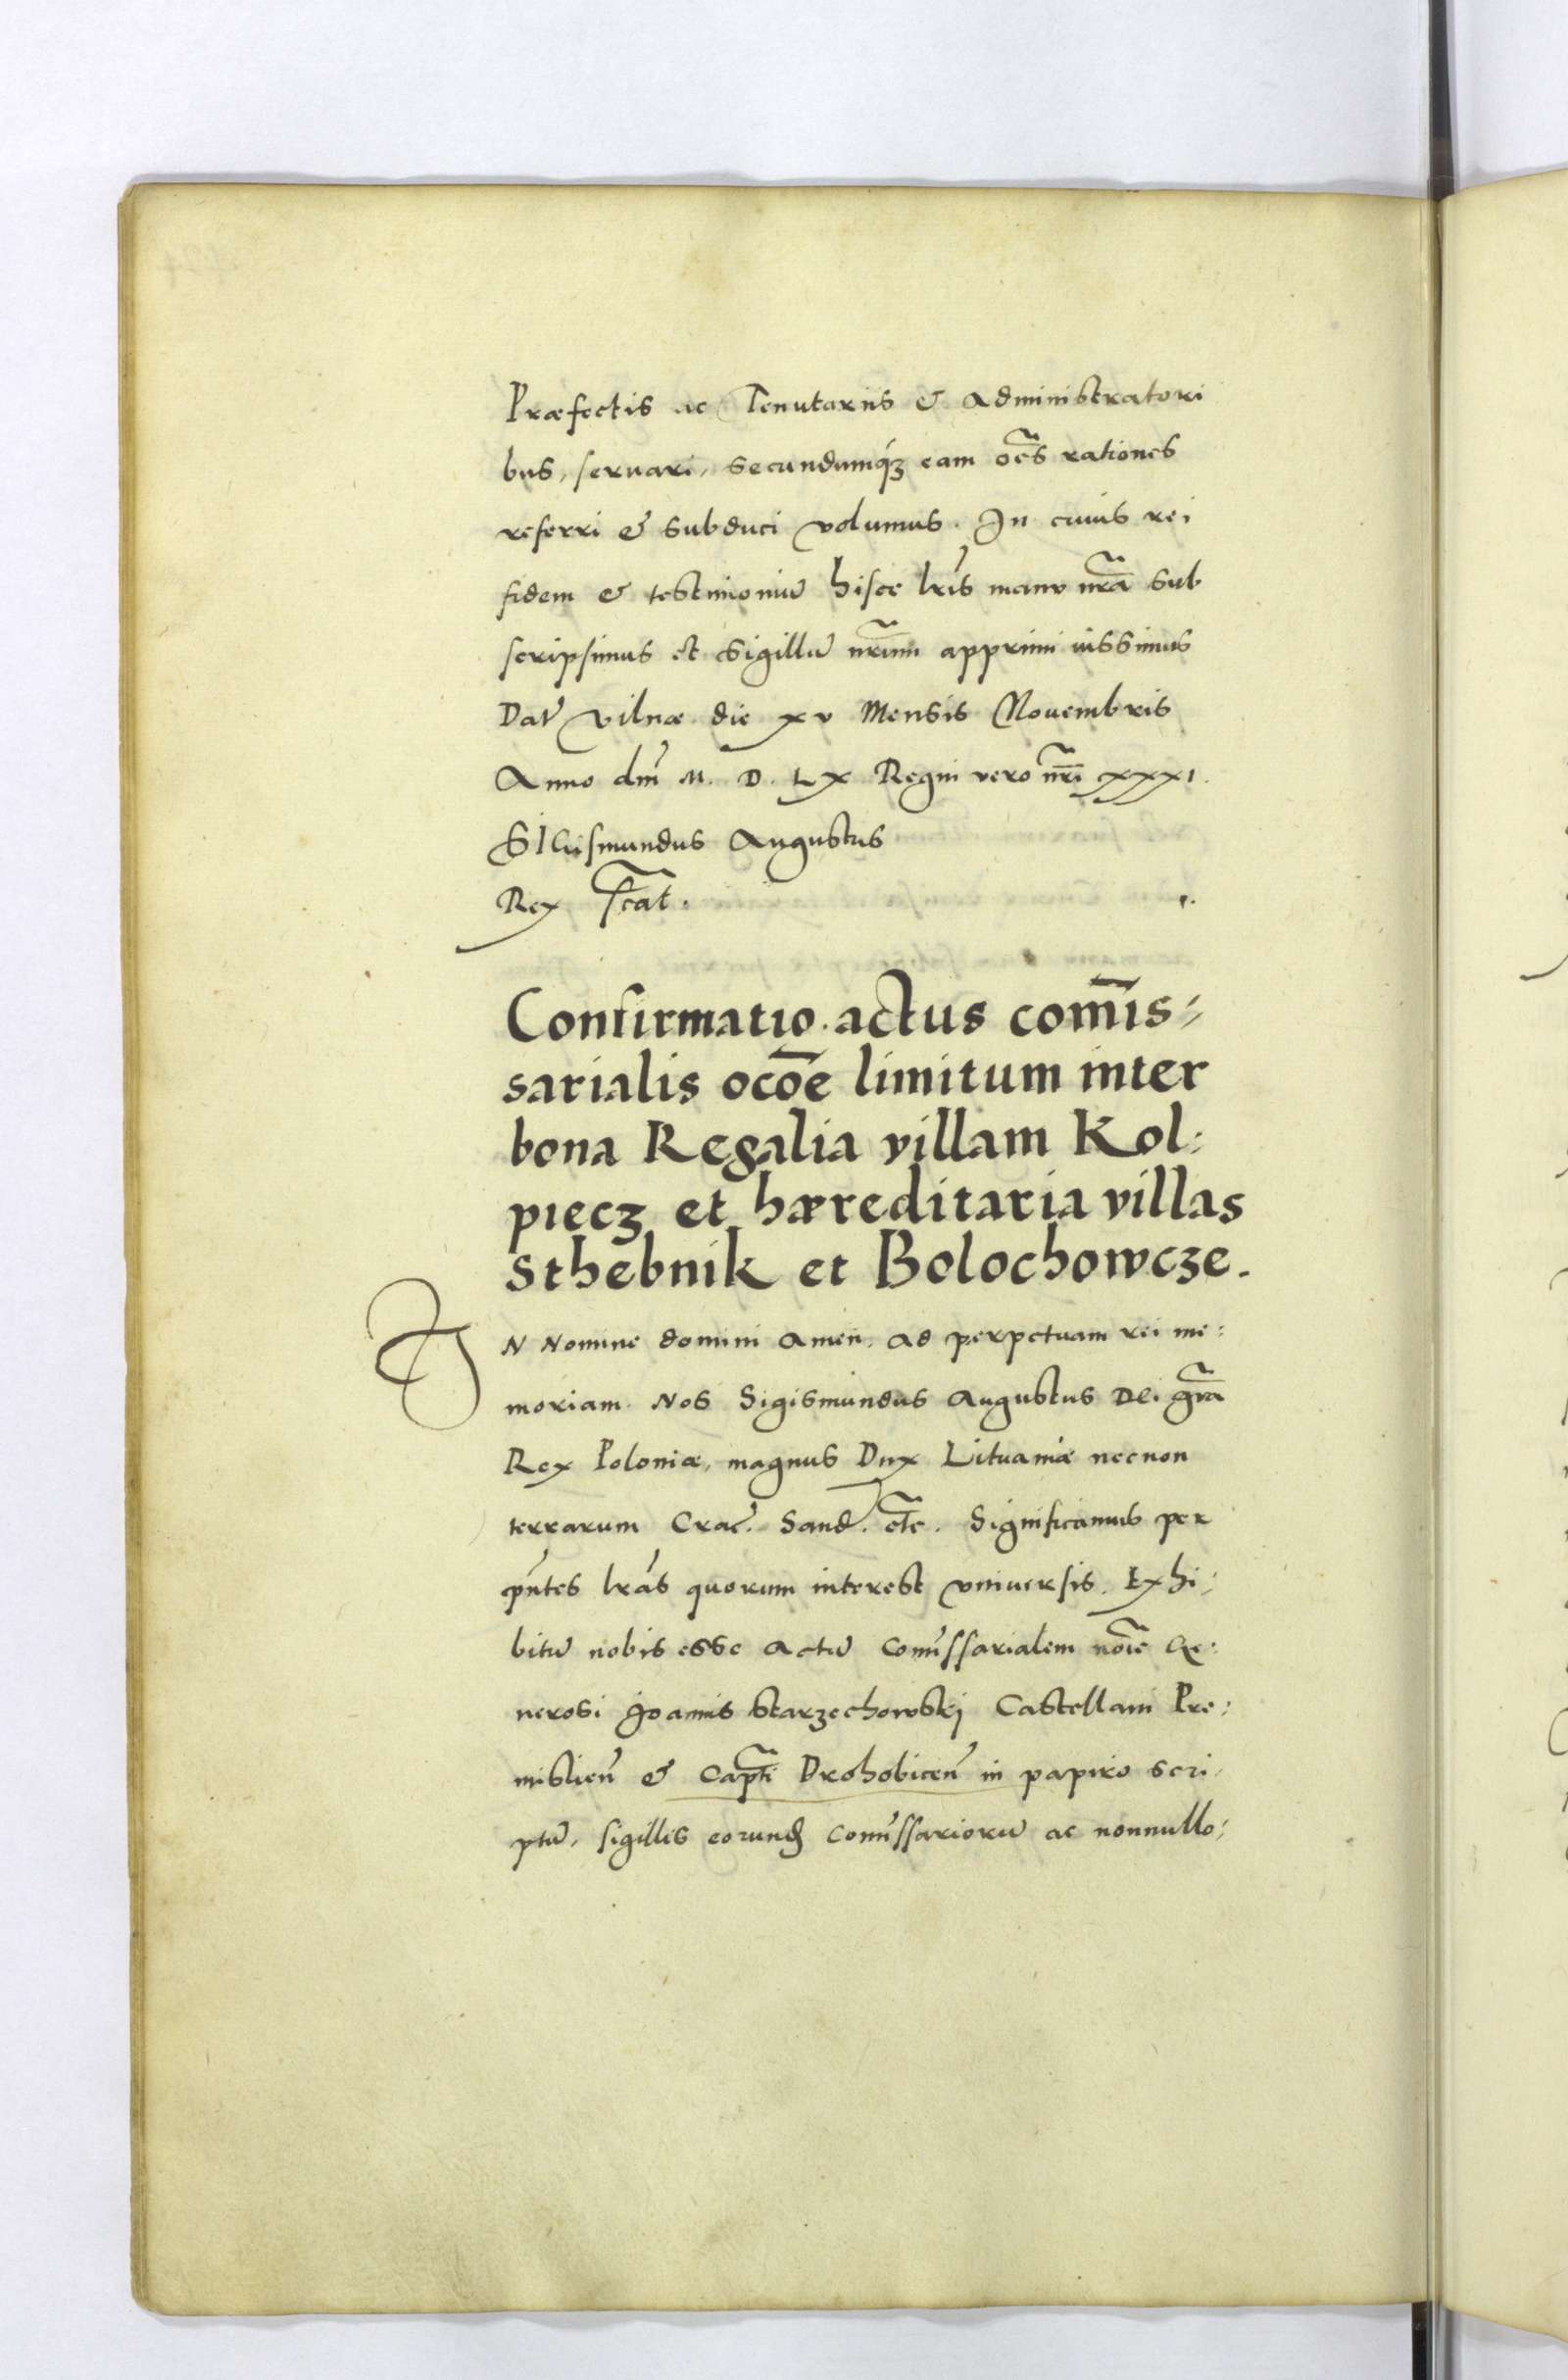 Præfectis ac Tenutariis & Administratori
bus, seruari, secundumq́ʒ eam oẽs rationes
referri & subduci volumus. In cuius rei
fidem & testimoniũ hisce lrĩs manu nrã sub
scripsimus et Sigillũ nrũm apprimi iussimus
Dat̃ Vilnæ die xv Mensis Nouembris
Anno dnĩ M. D. LX Regni vero nrĩ XXXI.
SIGismundus Augustus
Rex sscat̃.
Confirmatio actus com̃is⸗
sarialis occõe limitum inter
bona Regalia villam Kol:
piecz et hæreditaria villas
Sthebnik et Bolochowcze.
IN Nomine domini Amen. Ad perpetuam rei me:
moriam. Nos Sigismundus Augustus Dei grã
Rex Poloniæ, magnus Dux Lituaniæ necnon
terrarum Crac̃. Sand̃. etc̃. Significamus per
pñtes lrãs quorum interest vniuersis. Exhi:
bitũ nobis esse Actũ Com̃issarialem noĩe Ge:
nerosi Joannis Starzechowskj Castellani Pre:
mislieñ & Capt̃i Drohobiceñ in papiro scri:
ptũ, sigillis eorund̃ Com̃issariorũ ac nonnullo: